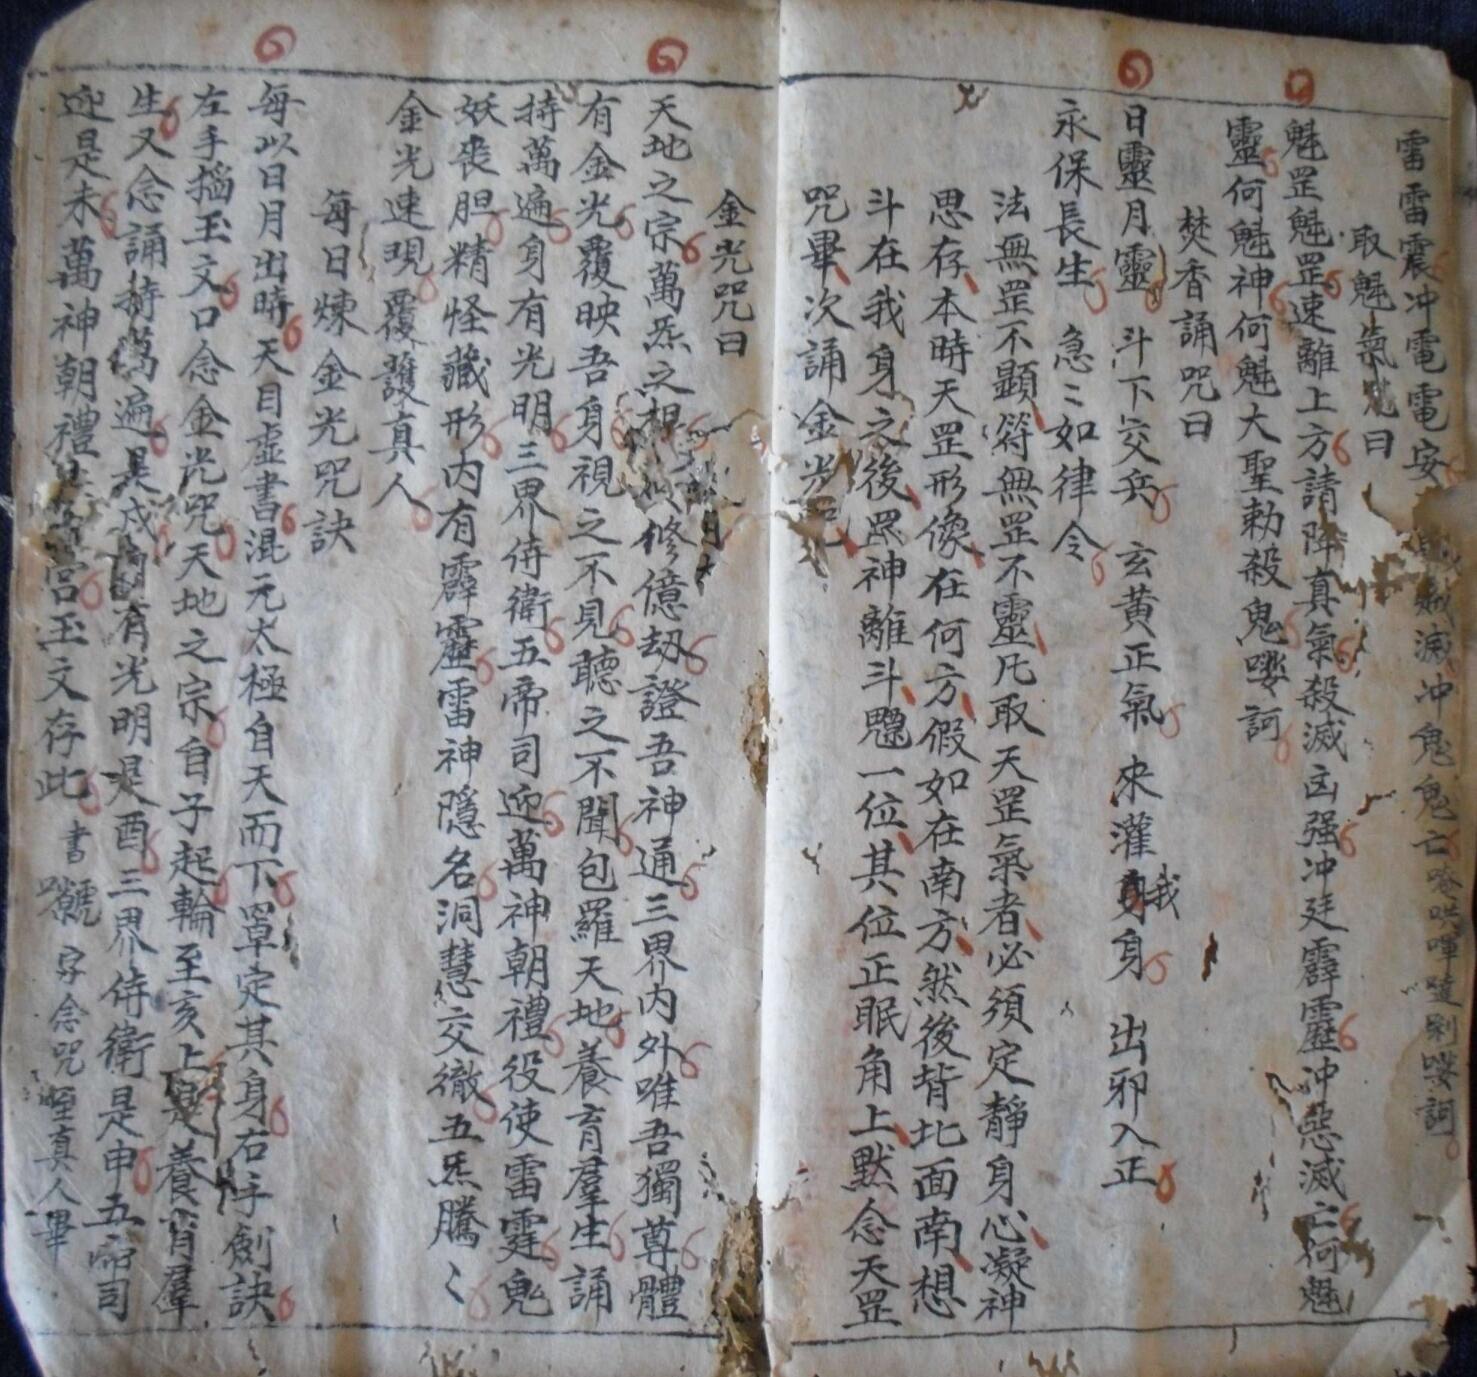 雷雷震冲電電安賊滅冲鬼鬼亡唵哄㖶
取魁氣咒曰
魁罡魁罡速離上方請降真氣殺滅凶强冲廷霹靂冲惡滅亡何魁
靈何魁神何魁大聖勅殺鬼㘈訶
焚香誦咒曰
日靈月靈 斗下交兵 玄黃正氣 來灌我身 出邪入正
永保長生 急〻如律令
法無罡不顯符無罡不靈凡取天罡氣者必須定靜身心凝神
思存本時天罡形像在何方假如在南方然後背北面南想
斗在我身之後罡神離斗魒一位其位正眠角上默念天罡
咒畢次誦金光咒
金光咒曰
天地之宗萬炁之根修億刼證吾神通三界内外唯吾獨尊體
有金光覆映吾身視之不見聽之不聞包羅天地養育羣生誦
持萬遍身有光明三界侍衛五帝司迎萬神朝禮役使雷霆鬼
妖喪胆精怪藏形内有霹靂雷神隱名洞慧交徹五炁騰〻
金光速現覆護真人
每日煉金光咒訣
每以日月出時天目虚書混元太極自天而下罩定其身右手劍訣
左手掐玉文口念金光咒天地之宗自子起輪至亥上是養育羣
生又念誦持萬遍是戌有光明是酉三界侍衛是申五帝司
迎是未萬神朝禮宫玉文存此書字念咒至真人畢